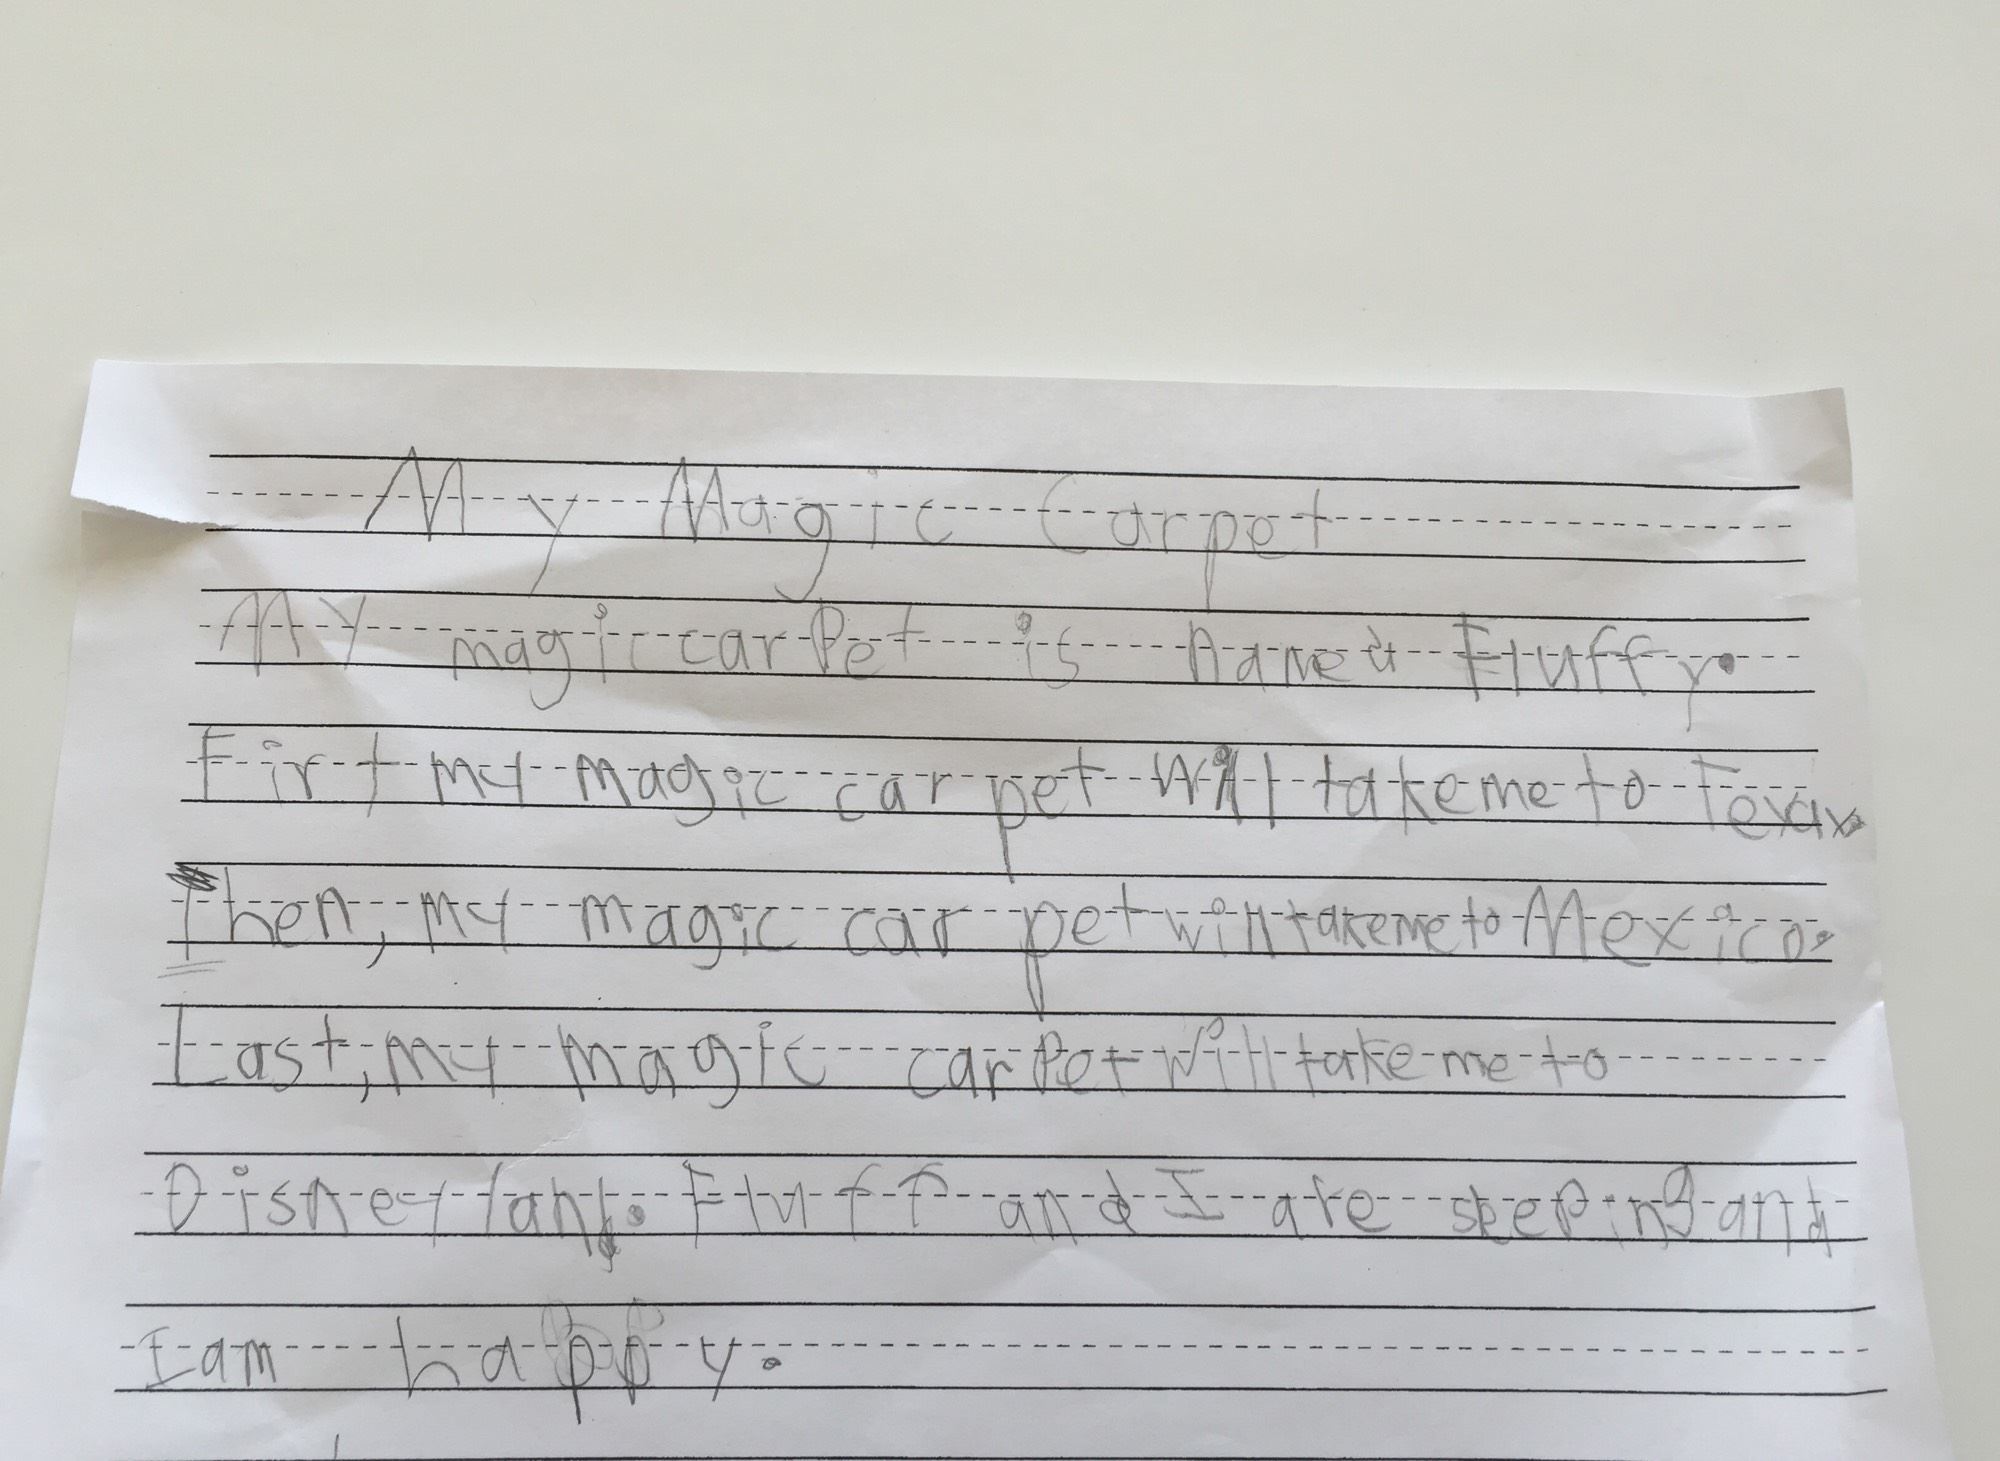 My Magic Carpet
My magic carPet is named Fluffy.
Firt my magic carpet will take me to Texax.
Then, my magic carpet will take me to Mexico.
Last, my magic carPet will take me to
Disneyland. Fluff and I are skeeping and
I am happy.